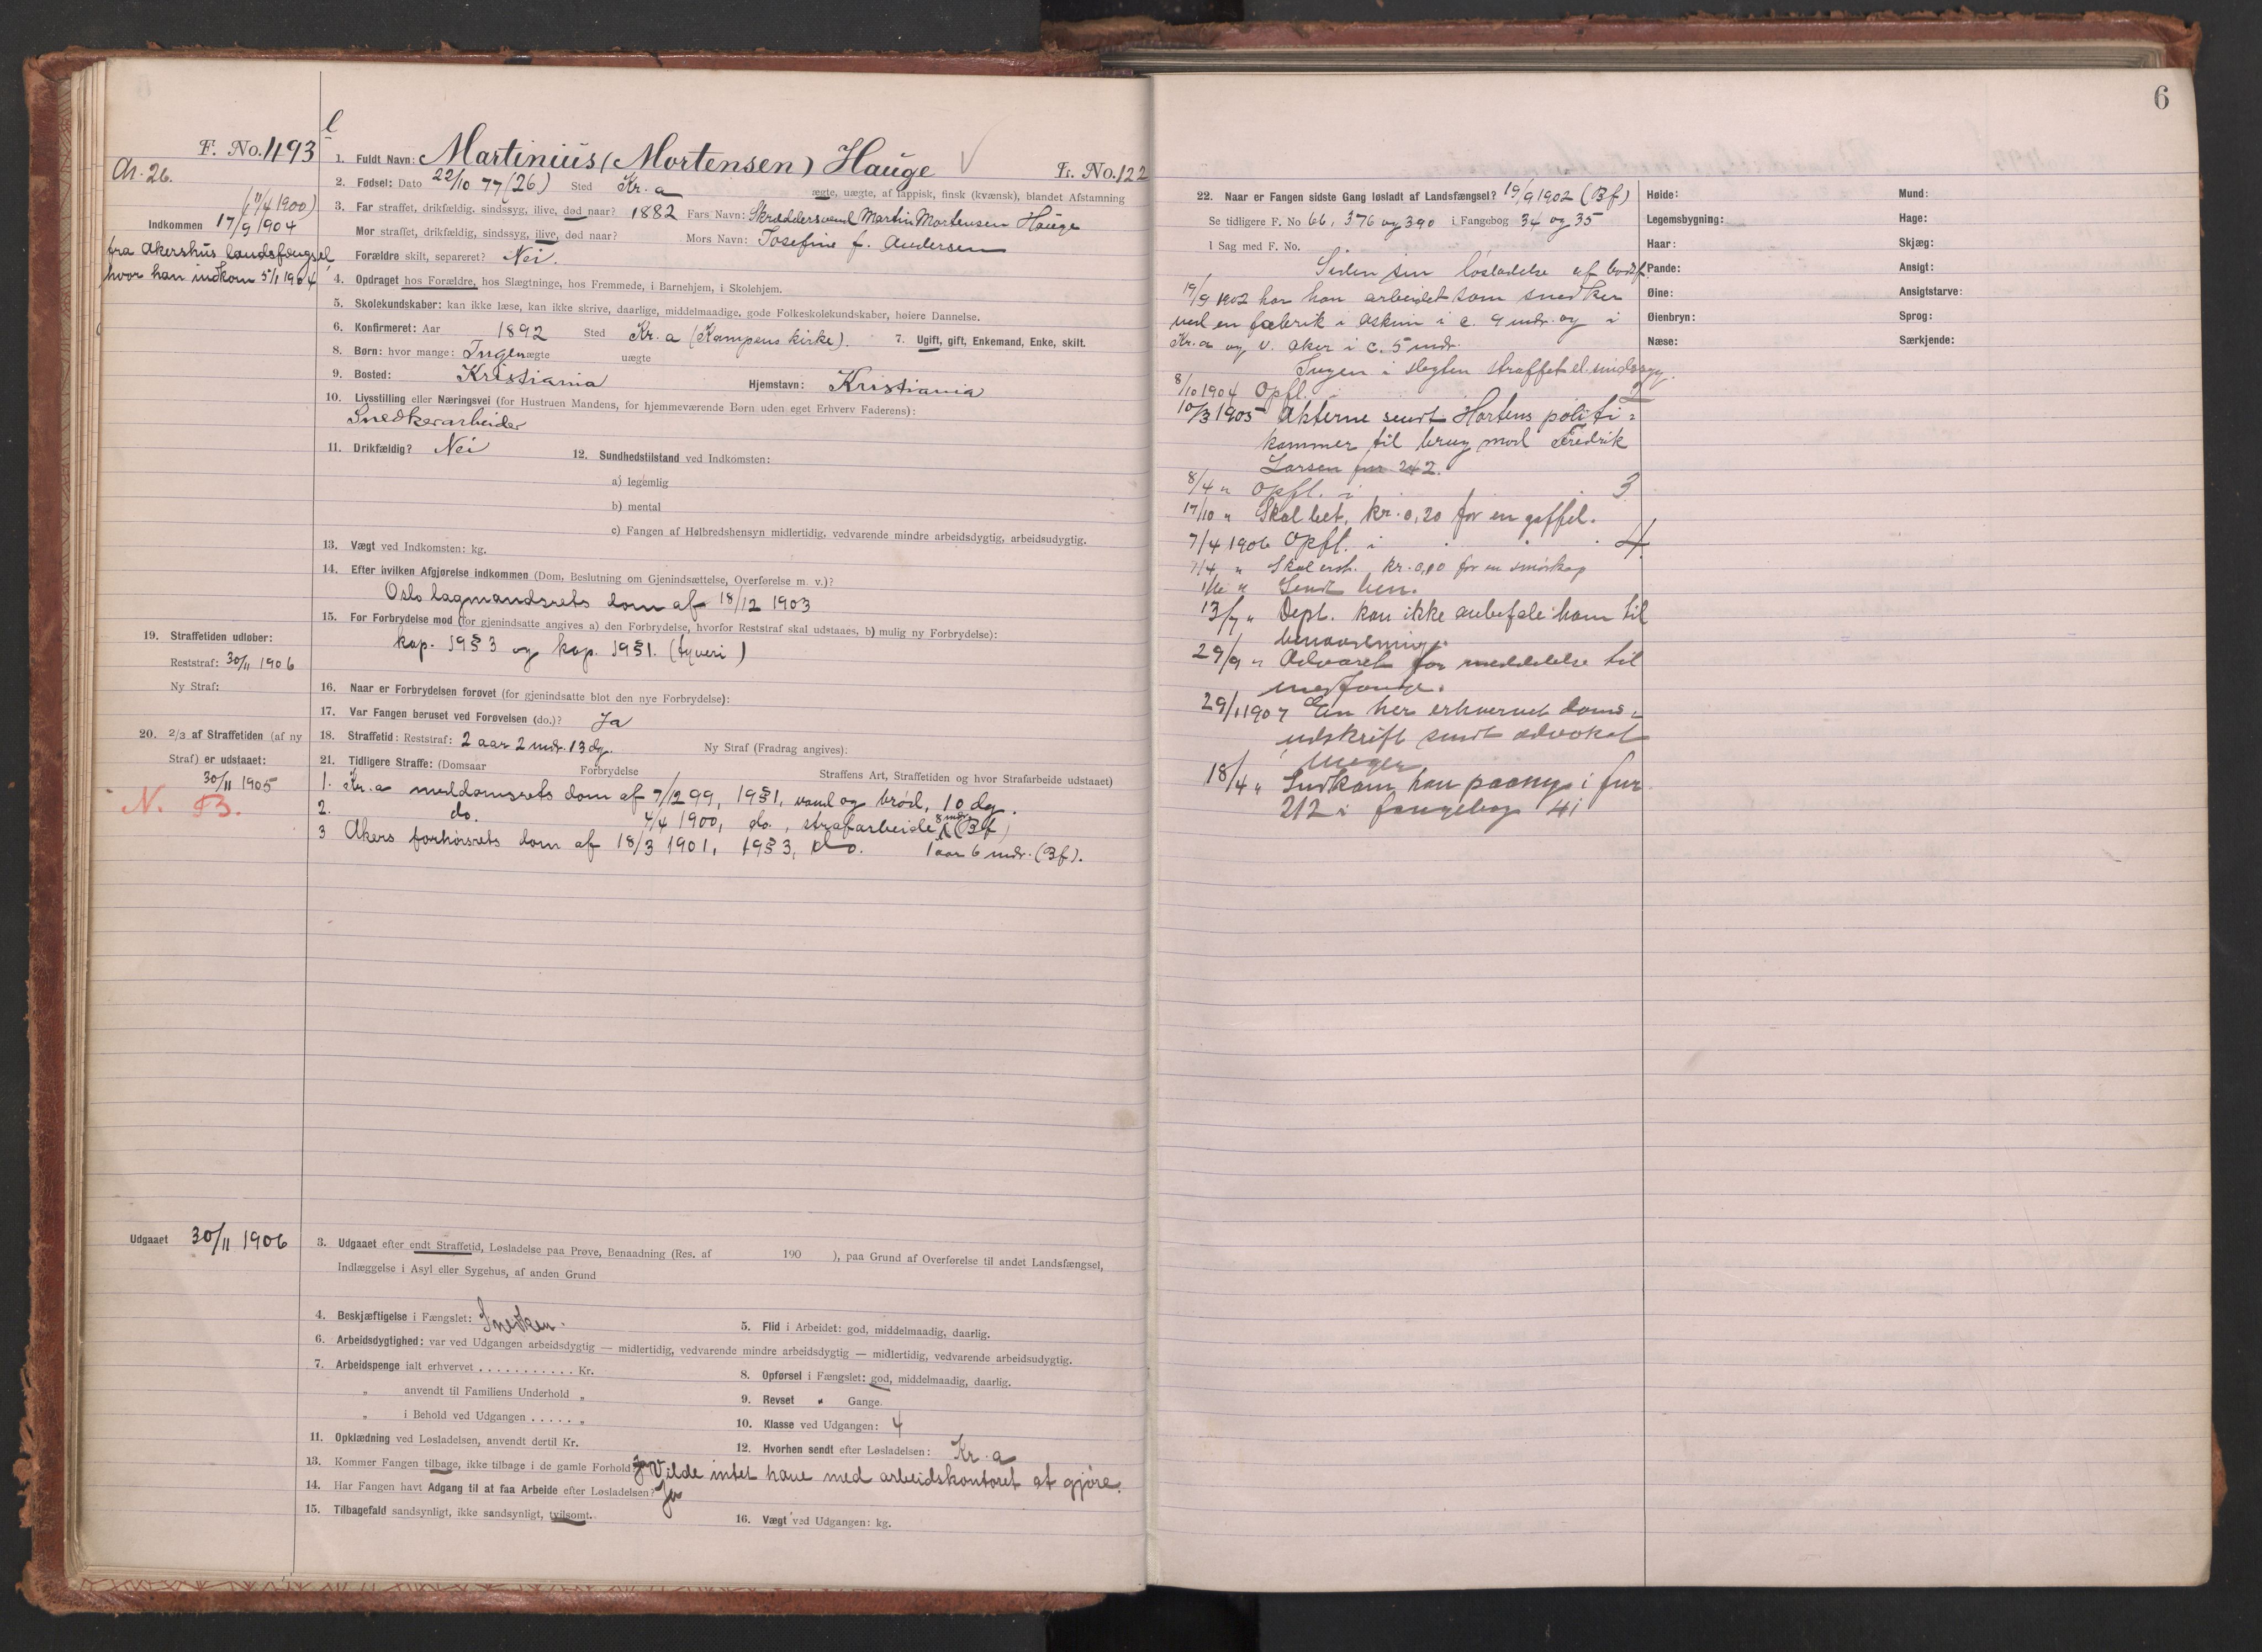 F. No. 493
l
Ar. 26.
(7/4 1900)
Indkommen 17/9 1904
fra Akershus landsfængsel,
hvor han indkom 5/1 1904
1. Fuldt Navn: Martinius (Mortensen) Hauge
Fr. No. 122
2. Fødsel: Dato 22/10 77 (26) Sted Kr.a ægte, uægte, af lappisk, finsk (kvænsk), blandet Afstamning
3. Far straffet, drikfældig, sindssyg, ilive, død naar? 1882 Fars Navn: Skræddersvend Martin Mortensen Hauge
Mor straffet, drikfældig, sindssyg, ilive, død naar? Mors Navn: Josefine f. Andersen
Forældre skilt, separeret? Nei.
4. Opdraget hos Forældre, hos Slægtninge, hos Fremmede, i Barnehjem, i Skolehjem.
5. Skolekundskaber: kan ikke læse, kan ikke skrive, daarlige, middelmaadige, gode Folkeskolekundskaber, høiere Dannelse.
6. Konfirmeret: Aar 1892 Sted Kr.a (Kampens kirke). 7. Ugift, gift, Enkemand, Enke, skilt.
8. Børn: hvor mange: Ingen ægte uægte
9. Bosted: Kristiania Hjemstavn: Kristiania
10. Livsstilling eller Næringsvei (for Hustruen Mandens, for hjemmeværende Børn uden eget Erhverv Faderens):
Snedkerarbeider
11. Drikfældig? Nei 12. Sundhedstilstand ved Indkomsten:
a) legemlig
b) mental
c) Fangen af Helbredshensyn midlertidig, vedvarende mindre arbeidsdygtig, arbeidsudygtig.
13. Vægt ved Indkomsten: kg.
14. Efter hvilken Afgjørelse indkommen (Dom, Beslutning om Gjenindsættelse, Overførelse m. v.)?
Oslo lagmandsrets dom af 18/12 1903
15. For Forbrydelse mod (for gjenindsatte angives a) den Forbrydelse, hvorfor Reststraf skal udstaaes, b) mulig ny Forbrydelse):
kap. 19 § 3 og kap. 19 § 1. (tyveri)
19. Straffetiden udløber:
Reststraf: 30/11 1906
Ny Straf:
16. Naar er Forbrydelsen forøvet (for gjenindsatte blot den nye Forbrydelse):
17. Var Fangen beruset ved Forøvelsen (do.)? Ja
20. 2/3 af Straffetiden (af ny
Straf) er udstaaet:
30/11 1905
N. B.
18. Straffetid: Reststraf: 2 aar 2 mdr. 13 dg. Ny Straf (Fradrag angives):
21. Tidligere Straffe: (Domsaar Forbrydelse Straffens Art, Straffetiden og hvor Strafarbeide udstaaet)
1. Kr.a meddomsrets dom af 7/12 99, 19 § 1, vand og brød, 10 dg.
2. do. 4/4 1900, do., strafarbeide 8 mdr. (Bf)
3 Akers forhørsrets dom af 18/3 1901, 19 § 3, do. 1 aar 6 mdr. (Bf).
Udgaaet 30/11 1906
3. Udgaaet efter endt Straffetid, Løsladelse paa Prøve, Benaadning (Res. af 190 ), paa Grund af Overførelse til andet Landsfængsel,
Indlæggelse i Asyl eller Sygehus, af anden Grund
4. Beskjæftigelse i Fængslet: Snedker. 5. Flid i Arbeidet: god, middelmaadig, daarlig.
6. Arbeidsdygtighed: var ved Udgangen arbeidsdygtig — midlertidig, vedvarende mindre arbeidsdygtig — midlertidig, vedvarende arbeidsudygtig.
7. Arbeidspenge ialt erhvervet . . . . . . . . . . . Kr. 8. Opførsel i Fængslet: god, middelmaadig, daarlig.
„ anvendt til Familiens Underhold „ 9. Revset " Gange.
„ i Behold ved Udgangen . . . . . „ 10. Klasse ved Udgangen: 4
11. Opklædning ved Løsladelsen, anvendt dertil Kr. 12. Hvorhen sendt efter Løsladelsen: Kr.a
13. Kommer Fangen tilbage, ikke tilbage i de gamle Forhold? Ja Vilde intet have med arbeidskontoret at gjøre.
14. Har Fangen havt Adgang til at faa Arbeide efter Løsladelsen? Ja
15. Tilbagefald sandsynligt, ikke sandsynligt, tvilsomt. 16. Vægt ved Udgangen: kg.
6
22. Naar er Fangen sidste Gang løsladt af Landsfængsel? 19/9 1902 (Bf)
Se tidligere F. No 66, 376 og 390 i Fangebog 34 og 35
I Sag med F. No.
Siden sin løsladelse af bodsf.
19/9 1902 har han arbeidet som snedker
ved en fabrik i Askim i c. 9 mdr. og i
Kr.a og V. Aker i c. 5 mdr.
Ingen i slegten straffet el. sindssyg.
8/10 1904 Opfl. 2
10/3 1905 Akterne sendt Hortens politi-
kammer til brug mod Fredrik
Larsen fnr. 242.
8/4 " Opfl. i . . . 3
17/10 " Skal bet. kr. 0,20 for en gaffel.
7/4 1906 Opfl. i . . . 4
7/4 " Skal erst. kr. 0,10 for en smørkop
1/6 " Sendt ben.
13/7 " Dept. kan ikke anbefale ham til
benaadning.
29/9 " Advaret for meddelelse til
medfange.
29/1 1907 En her erhvervet doms-
udskrift sendt advokat
Meyer
18/4 " Indkom han paany i fnr.
212 i fangebog 41
Høide:
Legemsbygning:
Haar:
Pande:
Øine:
Øienbryn:
Næse:
Mund:
Hage:
Skjæg:
Ansigt:
Ansigtstarve:
Sprog:
Særkjende: